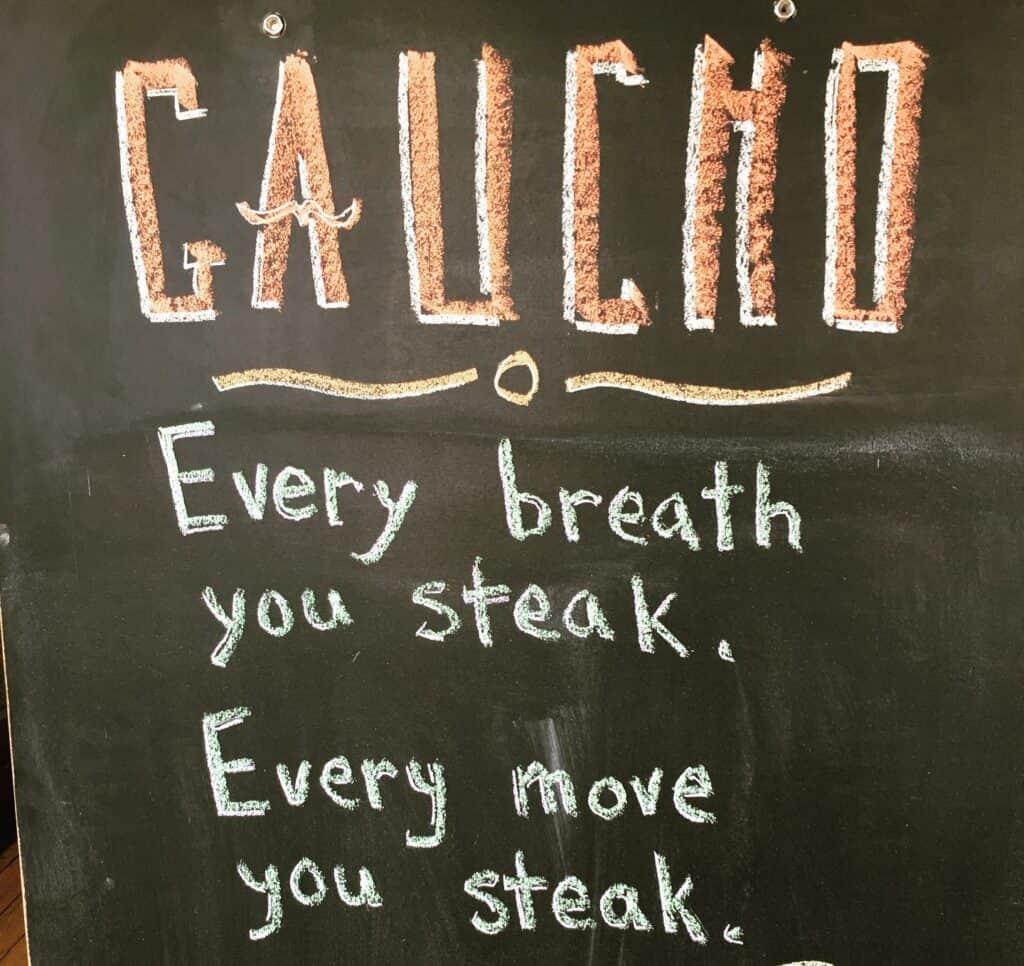 GAUCHO
Every breath
you steak.
Every move
you steak.